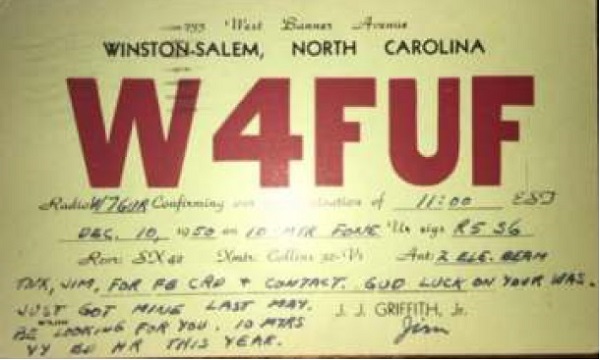 793 West Banner Avenue
WINSTON-SALEM, NORTH CAROLINA
W4FUF
Radio W7GUR Confirming our of 11:00 EST
DEC. 10, 1950 on 10 MTR FONE Ur sigs R5 S6
Rcvr: SX 42 Xmtr: Collins 32-V1 Ant: 2 ELE. BEAM
TNX, JIM, FOR FB CRD + CONTACT. GUD LUCK ON YOUR WAS.
JUST GOT MINE LAST MAY. J. J. GRIFFITH, Jr.
BE LOOKING FOR YOU. 10 MTRS Jim
VY BD HR THIS YEAR.